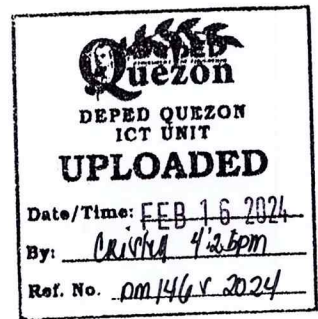 DEPED
Quezon
DEPED QUEZON
ICT UNIT
UPLOADED
Date/Time: FEB 16 2024
By: 4:26pm
Ref. No. 2024